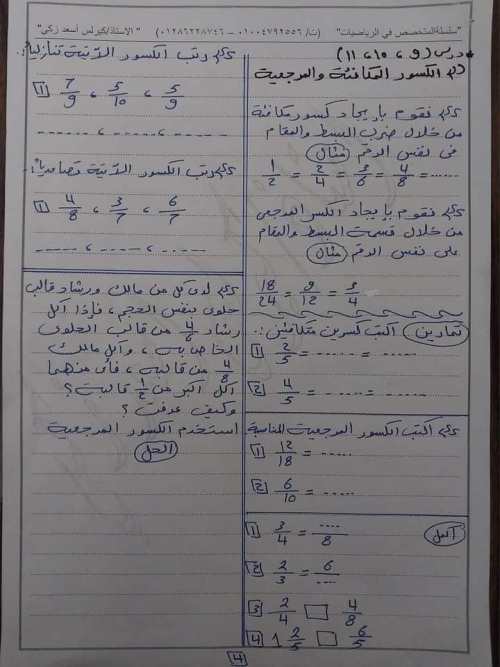 "سلسلة المتخصص في الرياضيات" (ت/ ٠١٠٠٤٧٩٢٥٥٦ - ٠١٢٨٦٢٢٨٧٤٦) "الاستاذ/كيرلس أسعد زكي"
* درس (٩ ، ١٠ ، ١١)
الكسور المتكافئة والمرجعية
نقوم بإيجاد كسور متكافئة
من خلال ضرب البسط والمقام
في نفس الرقم (مثال)
1/2 = 2/4 = 3/6 = 4/8 = ......
نقوم بإيجاد الكسر المرجعي
من خلال قسمة البسط والمقام
على نفس الرقم (مثال)
18/24 = 9/12 = 3/4
(تمارين) اكتب كسرين متكافئين:-
[1] 2/5 = ...... = ......
[2] 4/5 = ...... = ......
اكتب الكسور المرجعية المناسبة
[1] 12/18 = ......
[2] 6/10 = ......
(أكمل)
[1] 3/4 = ..../8
[2] 2/3 = 6/....
[3] 2/4 □ 4/8
[4] 1 2/5 □ 6/5
رتب الكسور الآتية تنازلياً:
[1] 7/9 ، 5/10 ، 5/9
...... ، ...... ، ......
رتب الكسور الآتية تصاعدياً:
[1] 4/8 ، 3/7 ، 6/7
...... ، ...... ، ......
لدى كل من مالك ورشاد قالب
حلوى بنفس الحجم ، فإذا أكل
رشاد 4/6 من قالب الحلوى
الخاص به ، وأكل مالك
4/8 من قالبه ، فأى منهما
أكل أكبر من 1/2 قالبه ؟
وكيف عرفت ؟
استخدم الكسور المرجعية
(الحل)
4